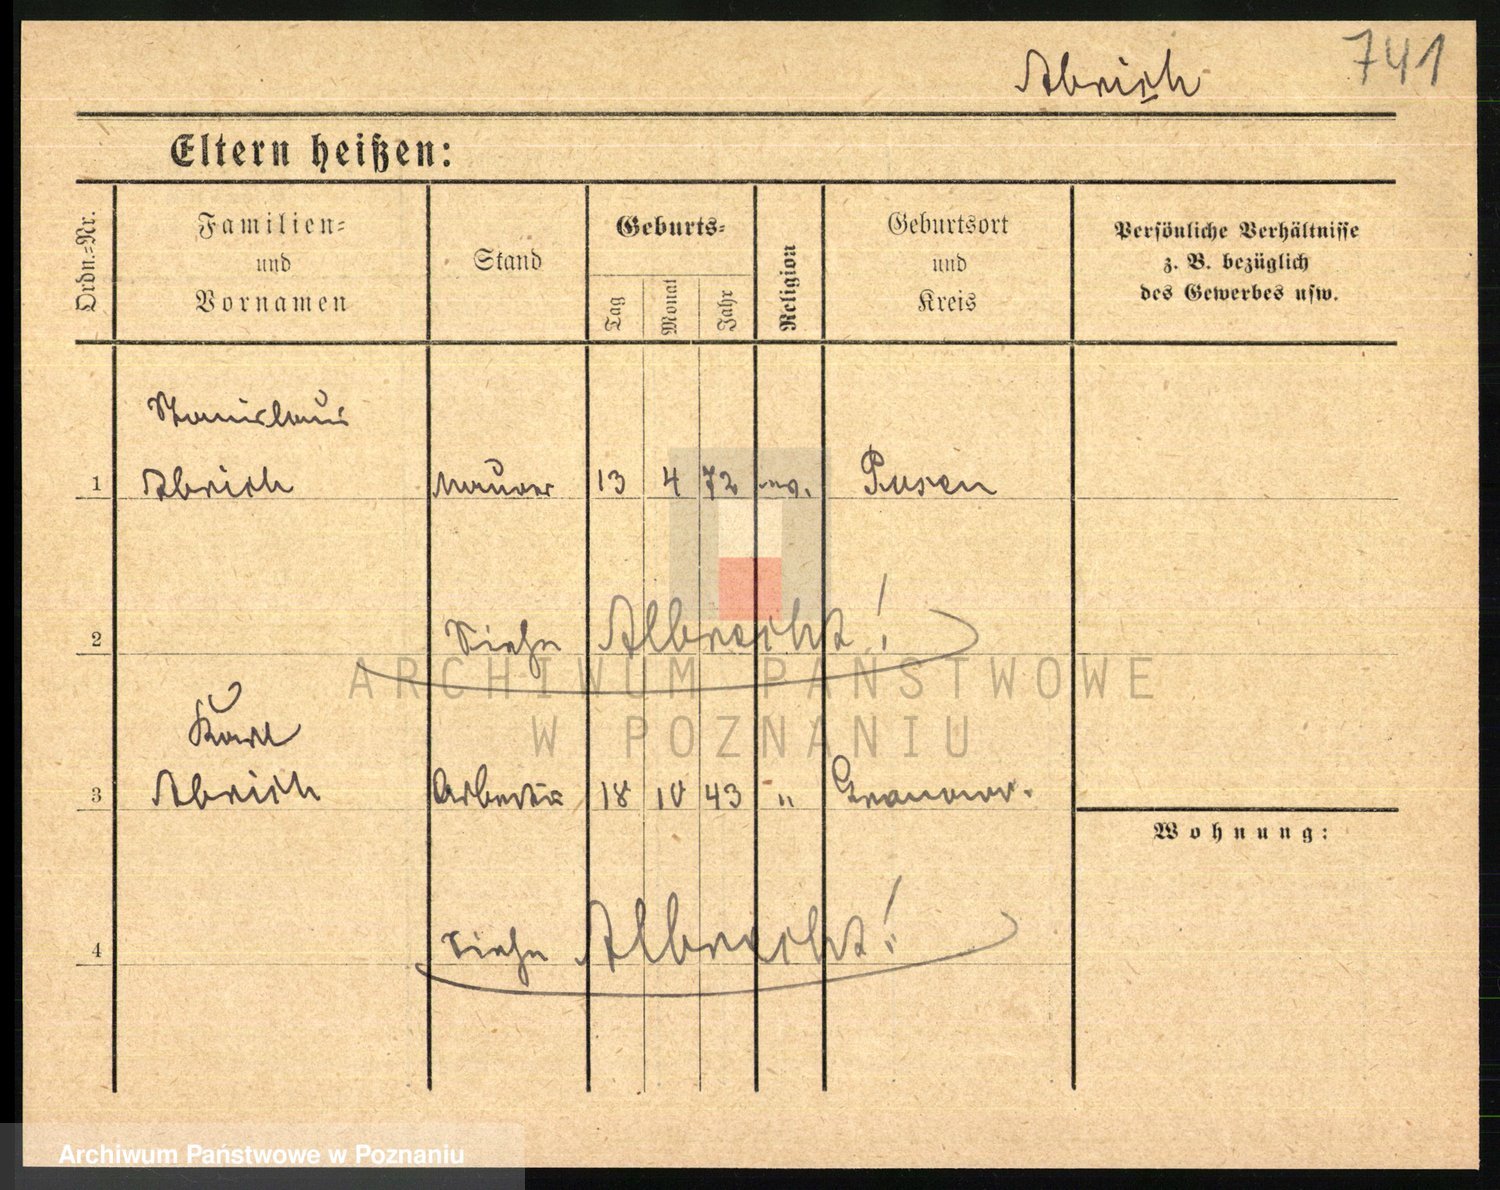 741
Abrich
Eltern heißen:
Ordn.-Nr.
Familien-
und
Vornamen
Stand
Geburts-
Tag
Monat
Jahr
Religion
Geburtsort
und
Kreis
Persönliche Verhältnisse
z. B. bezüglich
des Gewerbes usw.
Stanislaus
1 Abrich Maurer 13 4 72 Posen
2 Siehe Albrecht!
ARCHIWUM PAŃSTWOWE
W POZNANIU
Karl
3 Abrich Arbeiter 18 10 43 "
Wohnung:
4 Siehe Albrecht!
Archiwum Państwowe w Poznaniu